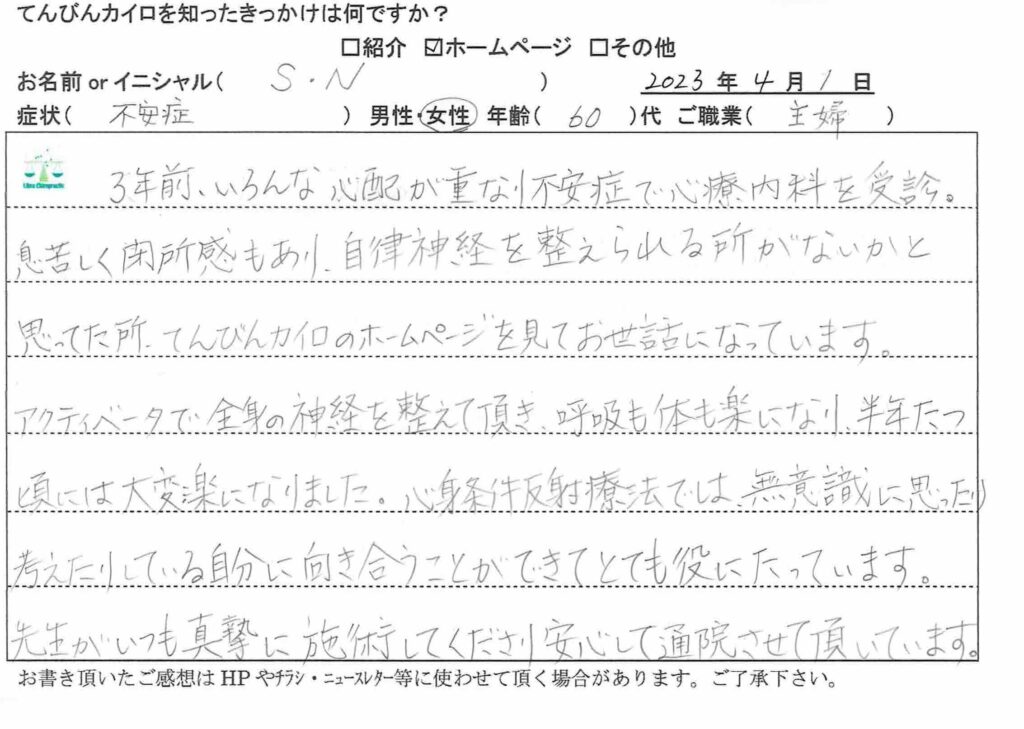 てんびんカイロを知ったきっかけは何ですか？
□紹介 ☑ホームページ □その他
お名前 or イニシャル( S・N ) 2023 年 4 月 1 日
症状( 不安症 ) 男性・女性 年齢( 60 )代 ご職業( 主婦 )
Libra Chiropractic
3年前、いろんな心配が重なり不安症で心療内科を受診。
息苦しく閉所感もあり、自律神経を整えられる所がないかと
思ってた所、てんびんカイロのホームページを見てお世話になっています。
アクティベータで全身の神経を整えて頂き、呼吸も体も楽になり、半年たつ
頃には大変楽になりました。心身条件反射療法では、無意識に思ったり
考えたりしている自分に向き合うことができてとても役にたっています。
先生がいつも真摯に施術してくださり安心して通院させて頂いています。
お書き頂いたご感想は HP やﾁﾗｼ・ﾆｭｰｽﾚﾀｰ等に使わせて頂く場合があります。ご了承下さい。